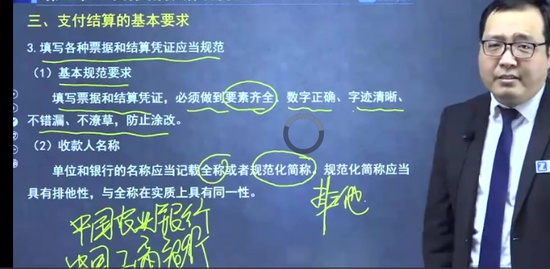 三、支付结算的基本要求
3. 填写各种票据和结算凭证应当规范
（1）基本规范要求
填写票据和结算凭证，必须做到要素齐全、数字正确、字迹清晰、
不错漏、不潦草，防止涂改。
（2）收款人名称
单位和银行的名称应当记载全称或者规范化简称。规范化简称应当
具有排他性，与全称在实质上具有同一性。
中国农业银行
中国工商银行